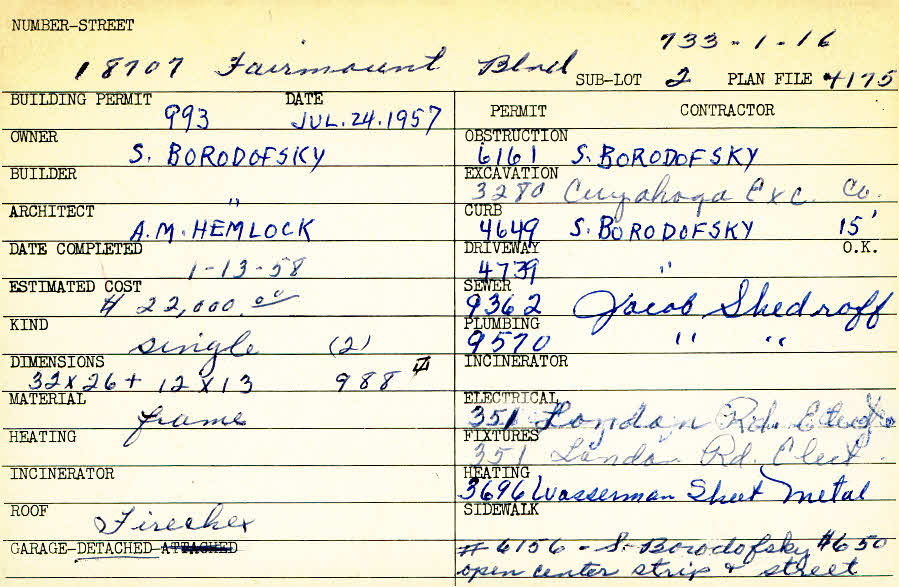 NUMBER-STREET
733-1-16
18707 Fairmount Blvd SUB-LOT 2 PLAN FILE 4175
BUILDING PERMIT DATE
993 JUL.24.1957
OWNER
S. BORODOFSKY
BUILDER
"
ARCHITECT
A.M. HEMLOCK
DATE COMPLETED
1-13-58
ESTIMATED COST
$ 22,000.00
KIND
single (2)
DIMENSIONS
32 x 26 + 12 x 13 988
MATERIAL
frame
HEATING
INCINERATOR
ROOF
Firechex
GARAGE-DETACHED-ATTACHED
PERMIT CONTRACTOR
OBSTRUCTION
6161 S. BORODOFSKY
EXCAVATION
3280 Cuyahoga Exc. Co.
CURB
4649 S. BORODOFSKY 15'
DRIVEWAY O.K.
4739 "
SEWER
9362 Jacob Shedroff
PLUMBING
9570 " "
INCINERATOR
ELECTRICAL
351 London Rd. Electric
FIXTURES
351 London Rd. Elect.
HEATING
3696 Wasserman Sheet Metal
SIDEWALK
# 6156 - S. Borodofsky $650
open center strip & street